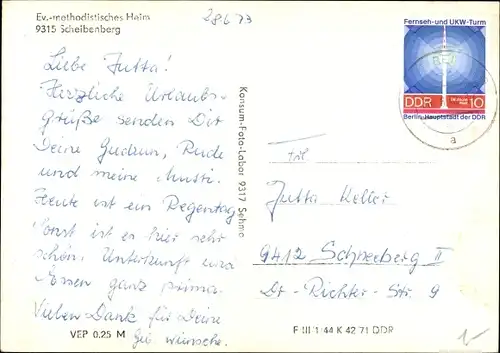 Ev.-methodistisches Heim
9315 Scheibenberg
28.6.73
Liebe Jutta!
Herzliche Urlaubs-
grüße senden Dir
Deine Gudrun,
und meine Mutti.
Heute ist ein Regentag
Sonst ist es hier sehr
schön, Unterkunft und
Essen ganz prima.
Vielen Dank für Deine
wünsche.
VEP 0.25 M
Konsum-Foto-Labor 9317 Sehma
Fernseh- und UKW-Turm
DDR 10
Berlin, Hauptstadt der DDR
a
Frl.
Jutta Keller
9412 Schneeberg II
Dr-Richter-Str. 9
F III 1 44 K 42 71 DDR